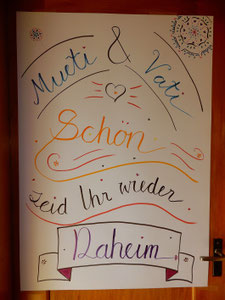 Mueti & Vati
Schön
seid Ihr wieder
Daheim